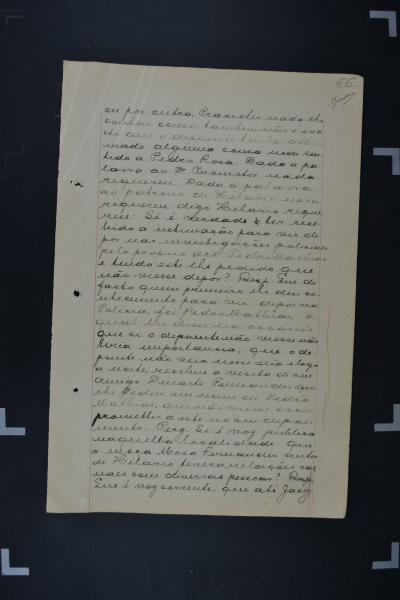 66
ou por outro, Praxedes nada lhe
contou como tambem não é exa
cto que o depoente tenha affir
mado alguma cousa nesse sen
tido a Pedro Rosa. Dado a pa
lavra ao Dr Promotor nada
requereu. Dado a palavra
ao patrono de Hilario nada
requereu digo Hilario reque
reu: Si é verdade ter rece
bido a intimação para vir de
por nas investigações policiaes
pelo proprio Pedro Mathias
e tendo este lhe pedido que
não viesse depor? Resp. Que de
facto quem primeiro lhe deu co
nhecimento para vir depor na
Policia, foi Pedro Mathias, o
qual lhe dissera
que si o depoente não viesse não
teria importancia, que o de
poente não veio nesse dia e logo
a noite, recebeu a visita de seu
amigo Duarte Fernandes que
lhe pediu em nome de Pedro
Mathias, que não viesse com
prometter a este no seu depoi
mento. Perg. Si é voz publica
naquella localidade que
a moça Rosa Fernandes antes
de Hilario tivera relações car
naes com diversas pessoas? Resp.
Que é voz corrente, que até